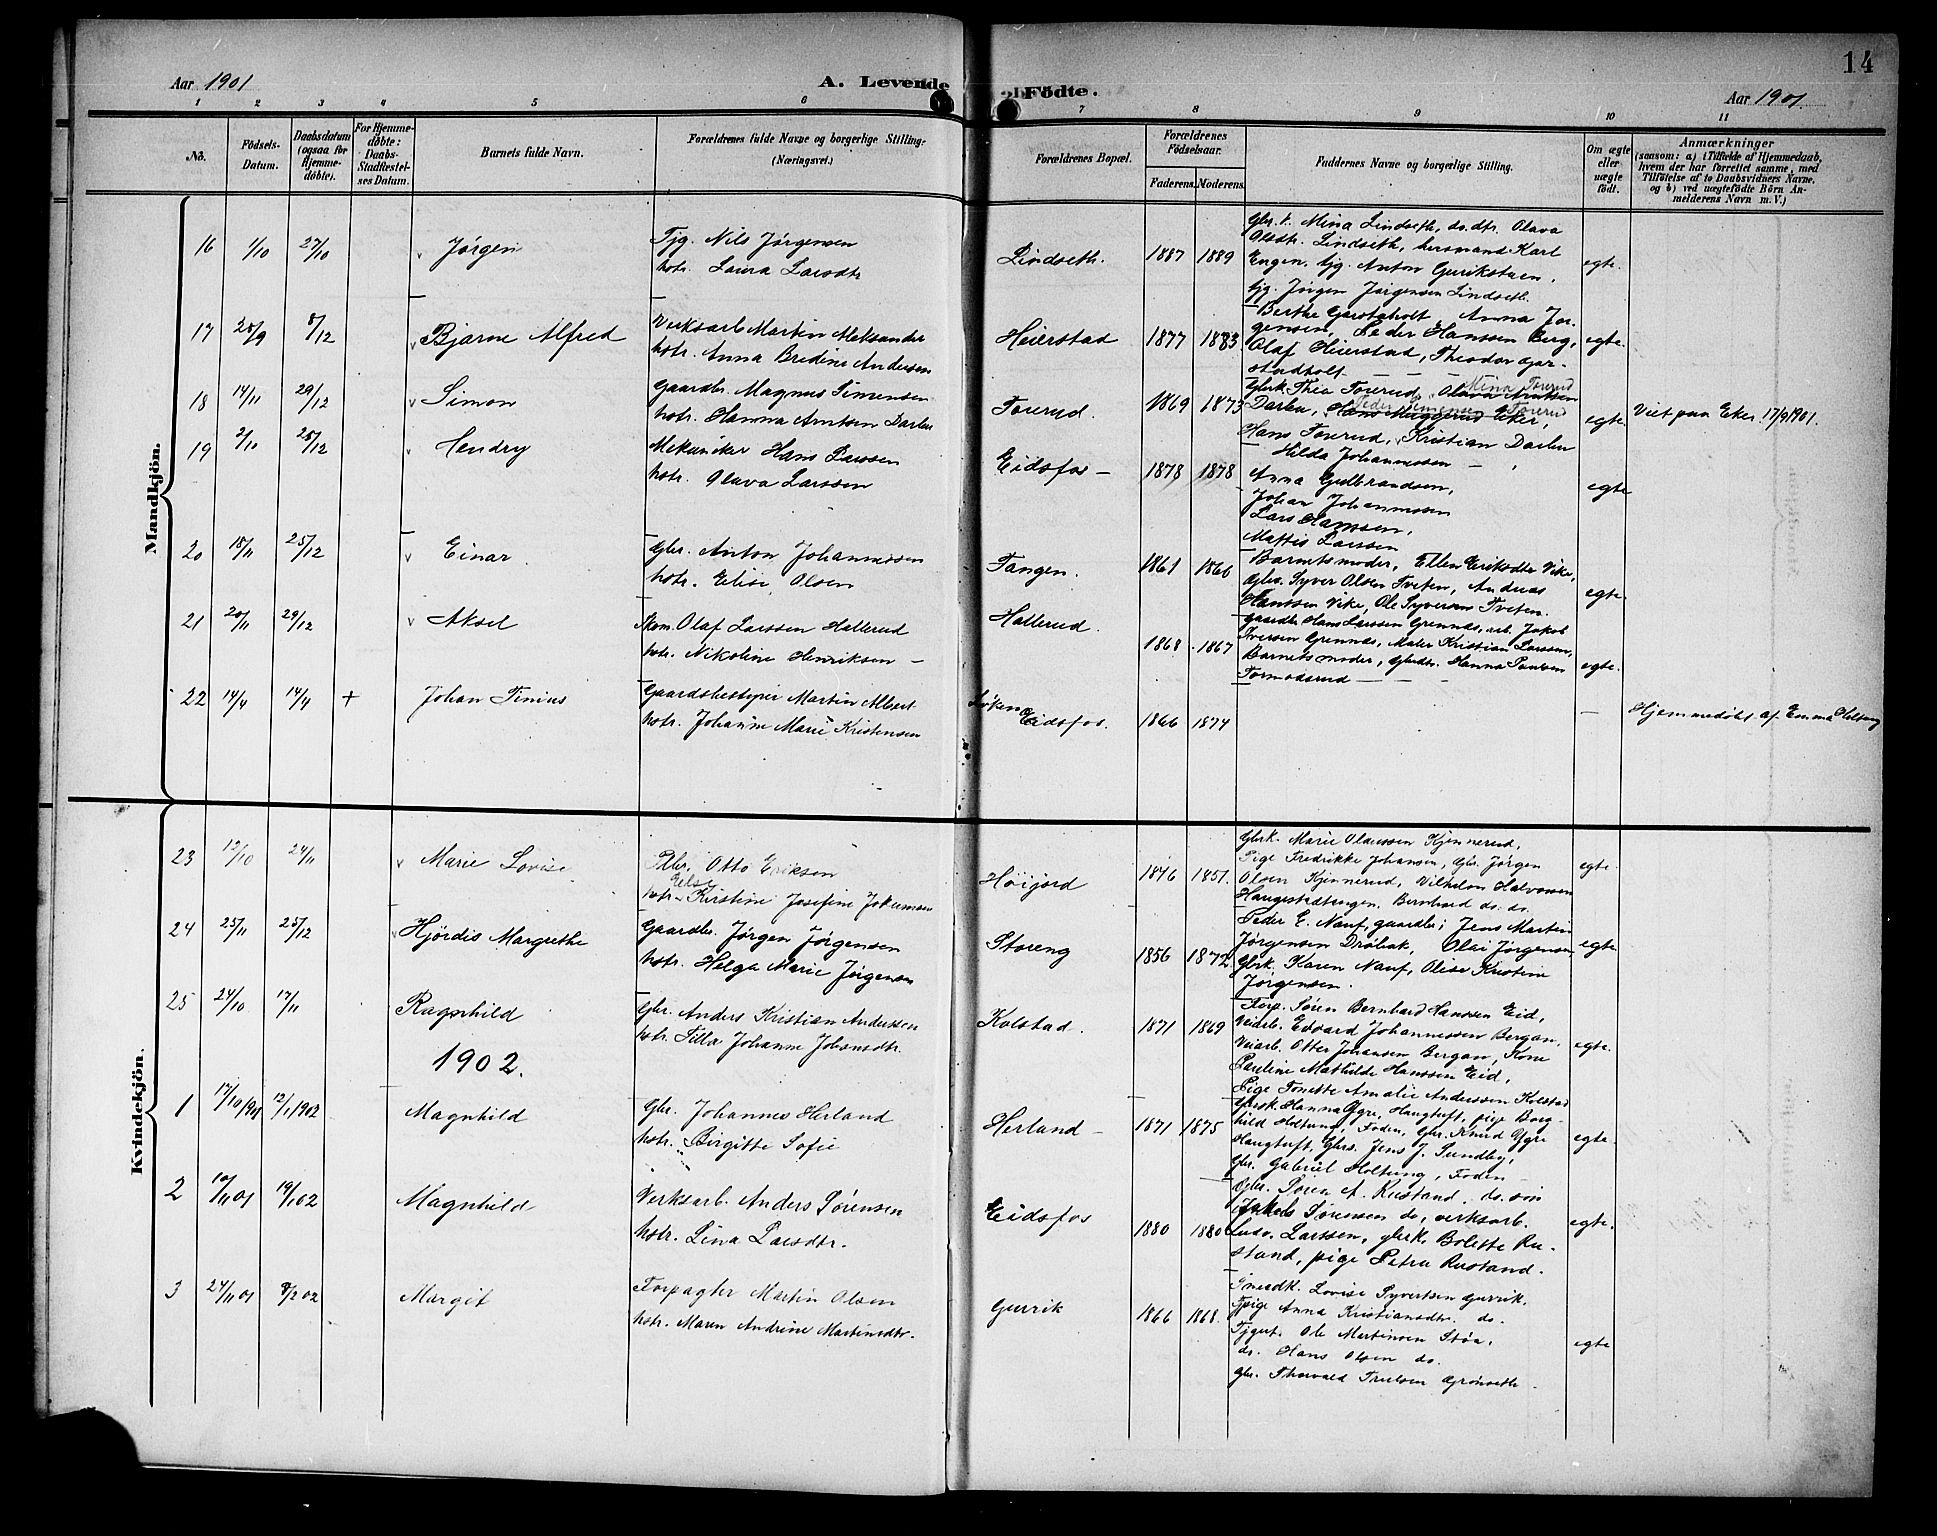 14
Aar 1901
A. Levende
Födte.
Aar 1901.
1 2 3 4 5 6 7 8 9 10 11
No.
Födsels-
Datum.
Daabsdatum
(ogsaa for
Hjemme-
döbte).
For Hjemme-
döbte:
Daabs-
Stadfæstel-
ses Datum.
Barnets fulde Navn.
Forældrenes fulde Navne og borgerlige Stilling.
(Næringsvei.)
Forældrenes Bopæl.
Forældrenes
Födselsaar.
Faderens.
Moderens.
Faddernes Navne og borgerlige Stilling.
Om ægte
eller
uægte
födt.
Anmærkninger
(saasom: a) i Tilfælde af Hjemmedaab,
hvem der har forrettet samme, med
Tilföielse af to Daabsvidners Navne,
og b) ved uægtefödte Börn An-
melderens Navn m. V.)
Mandkjön.
16 1/10 27/10 Jörgen
Tjg. Nils Jörgensen
hstr. Laura Larsdtr
Lindseth. 1887 1889
Gbr.k. Mina Lindseth, do.dtr. Olava
Olsdtr. Lindseth, husmand Karl
Engen, tjg. Anton Gurikstuen,
tjg. Jörgen Jörgensen Lindseth.
egte.
17 25/9 8/12 Bjarne Alfred
Verksarb. Martin Aleksander
hstr. Anna Bredine Andersen
Heierstad 1877 1883
Berthe Gjerstaholt, Anna Jör-
gensen, Peder Hanssen Berg,
Olaf Heierstad, Theodor Gjer-
stadholt
egte.
18 14/11 29/12 Simon
Gaardbr. Magnus Simensen
hstr. Hanna Arntsen Darbu
Foserud. 1869 1873
Mina Foserud
Gbrk. Thea Foserud, Olava Arntsen
Peder Simensen Foserud
Darbu, Hans Muggerud Eker,
Hans Foserud, Kristian Darbu
egte. Viet paa Eker 17/9 1901.
19 2/10 25/12 Hendry
Mekaniker Hans Larssen
hstr. Olava Larssen
Eidsfos - 1878 1878
Hilda Johannessen
Anna Gulbrandsen,
Johan Johannessen
Lars Hanssen,
Mattis Larssen
egte
20 18/11 25/12 Einar.
Gbr. Anton Johannessen
hstr. Elise Olsen
Tangen. 1861 1866
Barnets moder, Ellen Eriksdtr Vike,
Gbr. Syver Olsen Tveten, Andreas
Hanssen Vike, Ole Syversen Tveten.
egte.
21 20/11 29/12 Aksel
Olaf Larssen Hallerud
hstr. Nikoline Henriksen -
Hallerud. 1868 1867
Gaardbr. Hans Larssen Grennes, arb. Jakob
Iversen Grennes, Maler Kristian Larssen,
Barnets moder, Gbrdtr. Hanna Paulsen
Tormodsrud
egte.
22 14/4 14/4 + Johan Tinius
Gaardsbestyrer Martin Albert
hstr. Johanne Marie Kristensen
Eidsfos. 1866 1874
Hjemmedöbt af Emma Holtung
Kvindekjön.
23 12/10 24/11 Marie Lovise
Gbr. Otto Eriksen
Else
hstr. Kirstine Josefine Jokumsen
Höijord 1846 1851.
Gbrk. Marie Olaussen Kjennerud,
Pige Fredrikke Johansen, Gbr. Jörgen
Olsen Kjennerud, Vilhelm Halvorsen
Haugestadtangen, Bernhard do. do.
egte.
24 25/11 25/12 Hjördis Margrethe
Gaardbr. Jörgen Jörgensen
hstr. Helga Marie Jörgensen
Storeng 1856 1872
Peder E. Nauf, gaardbr; Jens Martin
Jörgensen Dröbak, Olai Jörgensen
Gbrk. Karen Nauf, Olise Kristine
Jörgensen.
egte
25 24/10 17/11 Ragnhild
Gbr. Anders Kristian Anderssen
hstr. Tilla Johanne Johansdtr.
Kolstad. 1871 1869
Forp. Sören Bernhard Hanssen Eid,
Veiarb. Edvard Johannessen Bergan,
Veiarb. Otter Johansen Bergan, Kone
Pauline Mathilde Hanssen Eid,
Pige Tonette Amalie Anderssen Kolstad
egte.
1902.
1 17/10 1901 12/1 1902 Magnhild
Gbr. Johannes Herland
hstr. Birgitte Sofie
Herland - 1871 1875
Gbrsk. Hanna Ygre, Haugtuft, pige Borg-
hild Holtung, Foden, Gbr. Knud Ygre
Haugtuft, Gbrs. Jens J. Sundby,
Gbr. Gabriel Holtung, Foden -
egte.
2 10/11 01 19/1 02 Magnhild
Verksarb. Anders Sörensen
hstr. Lina Larsdtr.
Eidsfos 1880 1880
Gbr. Sören A. Rustand, do. sön
Jakob Sörensen do, verksarb.
Ludv. Larssen, gbrk. Bolette Ru-
stand, pige Petra Rustand.
egte.
3 24/11 01 9/2 02 Margit
Forpagter Martin Olsen
hstr. Maren Andrine Martinsdtr.
Gurrik 1866 1868.
Smedk. Lovise Syvertsen Gurrik,
Tjpige Anna Kristiansdtr. do.
Tjgut. Ole Martinsen Stöa,
do. Hans Olsen do.
Gbr. Thorvald Trulsen Grönseth.
egte